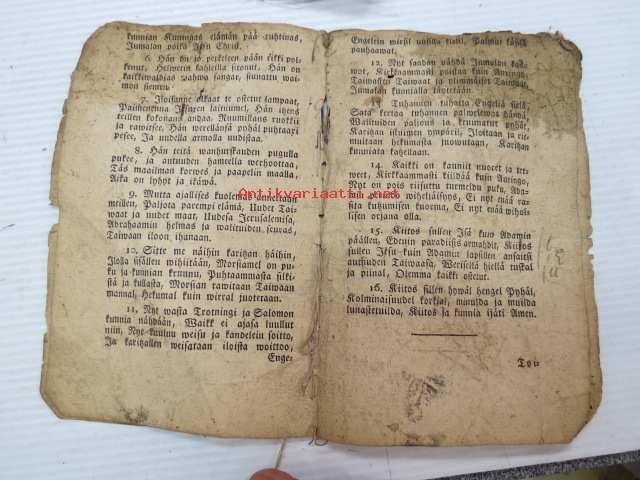 kunnian Kuningas elämän pää ruhtinas,
Jumalan poika Jesu Christ.
6. Hän on jo perkeleen pään rikki pol-
kenut, Helwetin kahleilla sitonut. Hän on
kaikkiwaldias wahwa sangar, siunattu wai-
mon siemen.
7. Iloitkamme te ostetut lampaat,
Paimenenna Israen lairiumet, Hän itzens
teillen kokonans andaa. Ruumillans ruokkii
ja rawitsee. Hän werellänsä pohjat puhtaaxi
pesee. Ja uudella armolla uudistaa.
8. Hän teitä wanhurskauden pugulla
pukee, ja autuuden hameella werhoottaa,
Täs maailman korwes ja paapelin maalla,
Aika on lyhyt ja ikäwä.
9. Mutta ajallisest kuolemas
meillen, Paljota parempi elämä. Uudet Tai-
waat ja uudet maat, Uudesa Jerusalemisa,
Abrahaamin helmas ja walittuiden seuras,
Taiwaan iloon ihanaan.
10. Sitte me näihin karitzan häihin,
Jloja sisällen wihitään, Morsiamet on pu-
ku ja kunnian kruunu, Puhtaammasta sitki-
stä ja kullasta, Morsian rawitaan Taiwaan
mannal, Hekumal kuin wirral juotetaan.
11, Nyt wasta Drotningi ja Salomon
kunnia nähdään, Waikk ei ajasa luullut
niin, Nyt kuuluu weisu ja kandelein soitto,
Ja karitzallen weisataan iloista woittoo,
Enge-
Engelein wirsil uusilla kielil, Palmut käsisä
pauhaawat.
12. Nyt saadan nähdä Jumalan kas-
wot, Kirkkaammasti paistaa kuin Auringo,
Taiwasten Taiwaat ja ylimmäiset Taiwaat,
Jumalan kunnialla täytetään.
Tuhannen tuhatta Engeliä siellä,
Sata kertaa tuhannen palwelewat händä,
Walittuiden paljous ja kruunatut pyhät,
Karitzan istuimen ympäril, Iloitaan ja rie-
muitaan hekumasta juowutaan, Karitzan
kunniata katzellaan.
14. Kaikki on kauniit nuoret ja ter-
weet, Kirkkaammasti kiildää kuin Auringo,
Nyt on pois riisuttu turmeldu puku, Ada-
min perindö wiheliäisyys, Ei nyt enää ras-
sita kuhumisen kuorma, Ei nyt enää wihol-
lisen orjana olla.
15. Kiitos sullen Isä kuin Adamin
päällen, Edenin paradiisis armahdit, Kiitos
sullen Jesu kuin Adamin lapsillen ansaitsit
autuuden Taiwaasa, Weriselä hiellä tuskal
ja piinal, Olemma kaikki ostetut.
16. Kiitos sullen hywäl hengel Pyhäl,
Kolminaisuudel korkjal, minulda ja muilda
lunastetuilda, Kiitos ja kunnia ijäti Amen.
Toi-
Antikvariaatti.net